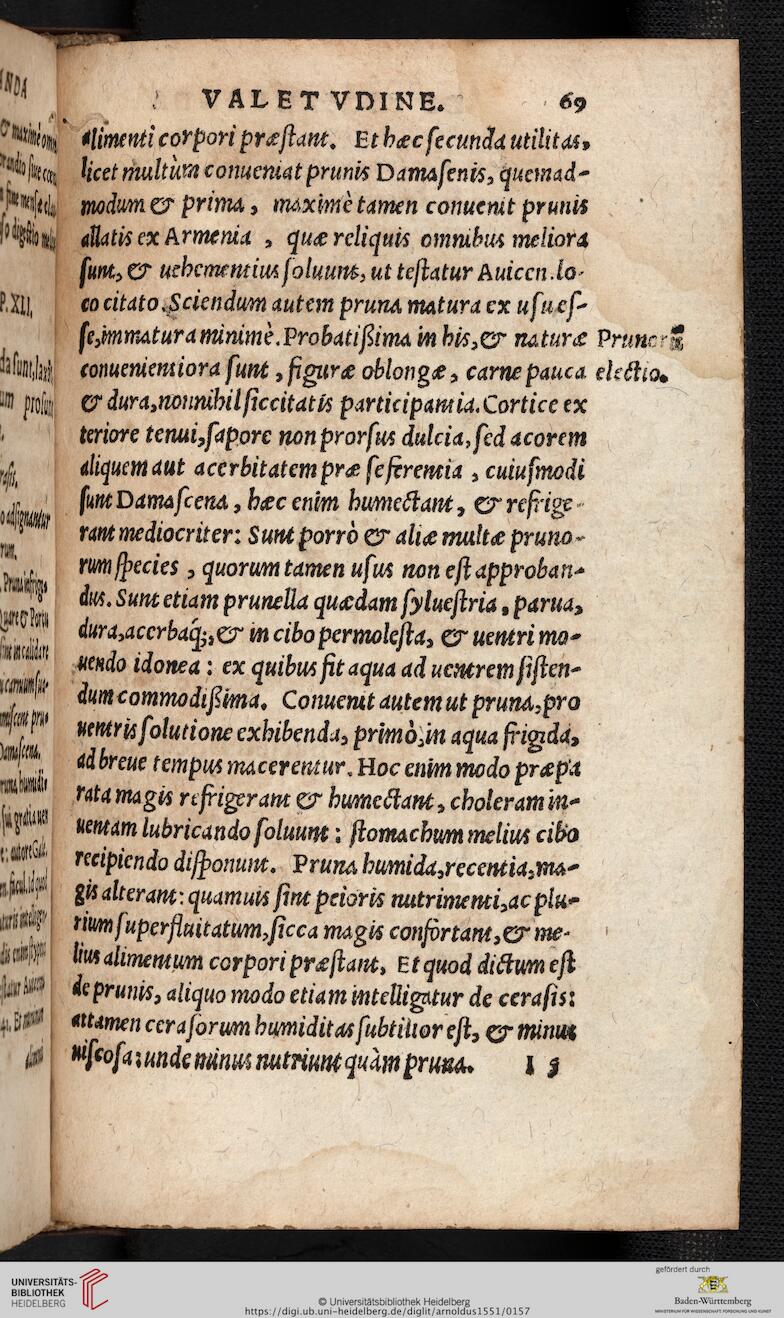 VALETVDINE. 69
alimenti corpori præſtant. Et hæc ſecunda utilitas,
licet multùm conueniat prunis Damaſenis, quemad-
modum & prima, maximè tamen conuenit prunis
allatis ex Armenia, quæ reliquis omnibus meliora
ſunt, & uehementius ſoluunt, ut teſtatur Auicen. lo-
co citato. Sciendum autem pruna matura ex uſu eſ-
ſe, immatura minimè. Probatißima in his, & naturæ
conuenientiora ſunt, figuræ oblongæ, carne pauca
& dura, nonnihil ſiccitatis participantia. Cortice ex
teriore tenui, ſapore non prorſus dulcia, ſed acorem
aliquem aut acerbitatem præ ſe ferentia, cuiuſmodi
ſunt Damaſcena, hæc enim humectant, & refrige-
rant mediocriter: Sunt porrò & aliæ multæ pruno-
rum ſpecies, quorum tamen uſus non eſt approban-
dus. Sunt etiam prunella quædam ſylueſtria, parua,
dura, acerbaq́;, & in cibo permoleſta, & uentri mo-
uendo idonea: ex quibus fit aqua ad uentrem ſiſten-
dum commodißima. Conuenit autem ut pruna, pro
uentris ſolutione exhibenda, primò, in aqua frigida,
ad breue tempus macerentur. Hoc enim modo præpa
rata magis refrigerant & humectant, choleram in-
uentam lubricando ſoluunt: ſtomachum melius cibo
recipiendo diſponunt. Pruna humida, recentia, ma-
gis alterant: quamuis ſint peioris nutrimenti, ac plu-
rium ſuperfluitatum, ſicca magis confortant, & me-
lius alimentum corpori præſtant, Et quod dictum eſt
de prunis, aliquo modo etiam intelligatur de ceraſis:
attamen ceraſorum humiditas ſubtilior eſt, & minus
uiſcoſa: unde minus nutriunt quàm pruna. I 5
electio.
P. XII,
UNIVERSITÄTS-
BIBLIOTHEK
HEIDELBERG
© Universitätsbibliothek Heidelberg
https://digi.ub.uni-heidelberg.de/diglit/arnoldus1551/0157
gefördert durch
Baden-Württemberg
MINISTERIUM FÜR WISSENSCHAFT, FORSCHUNG UND KUNST